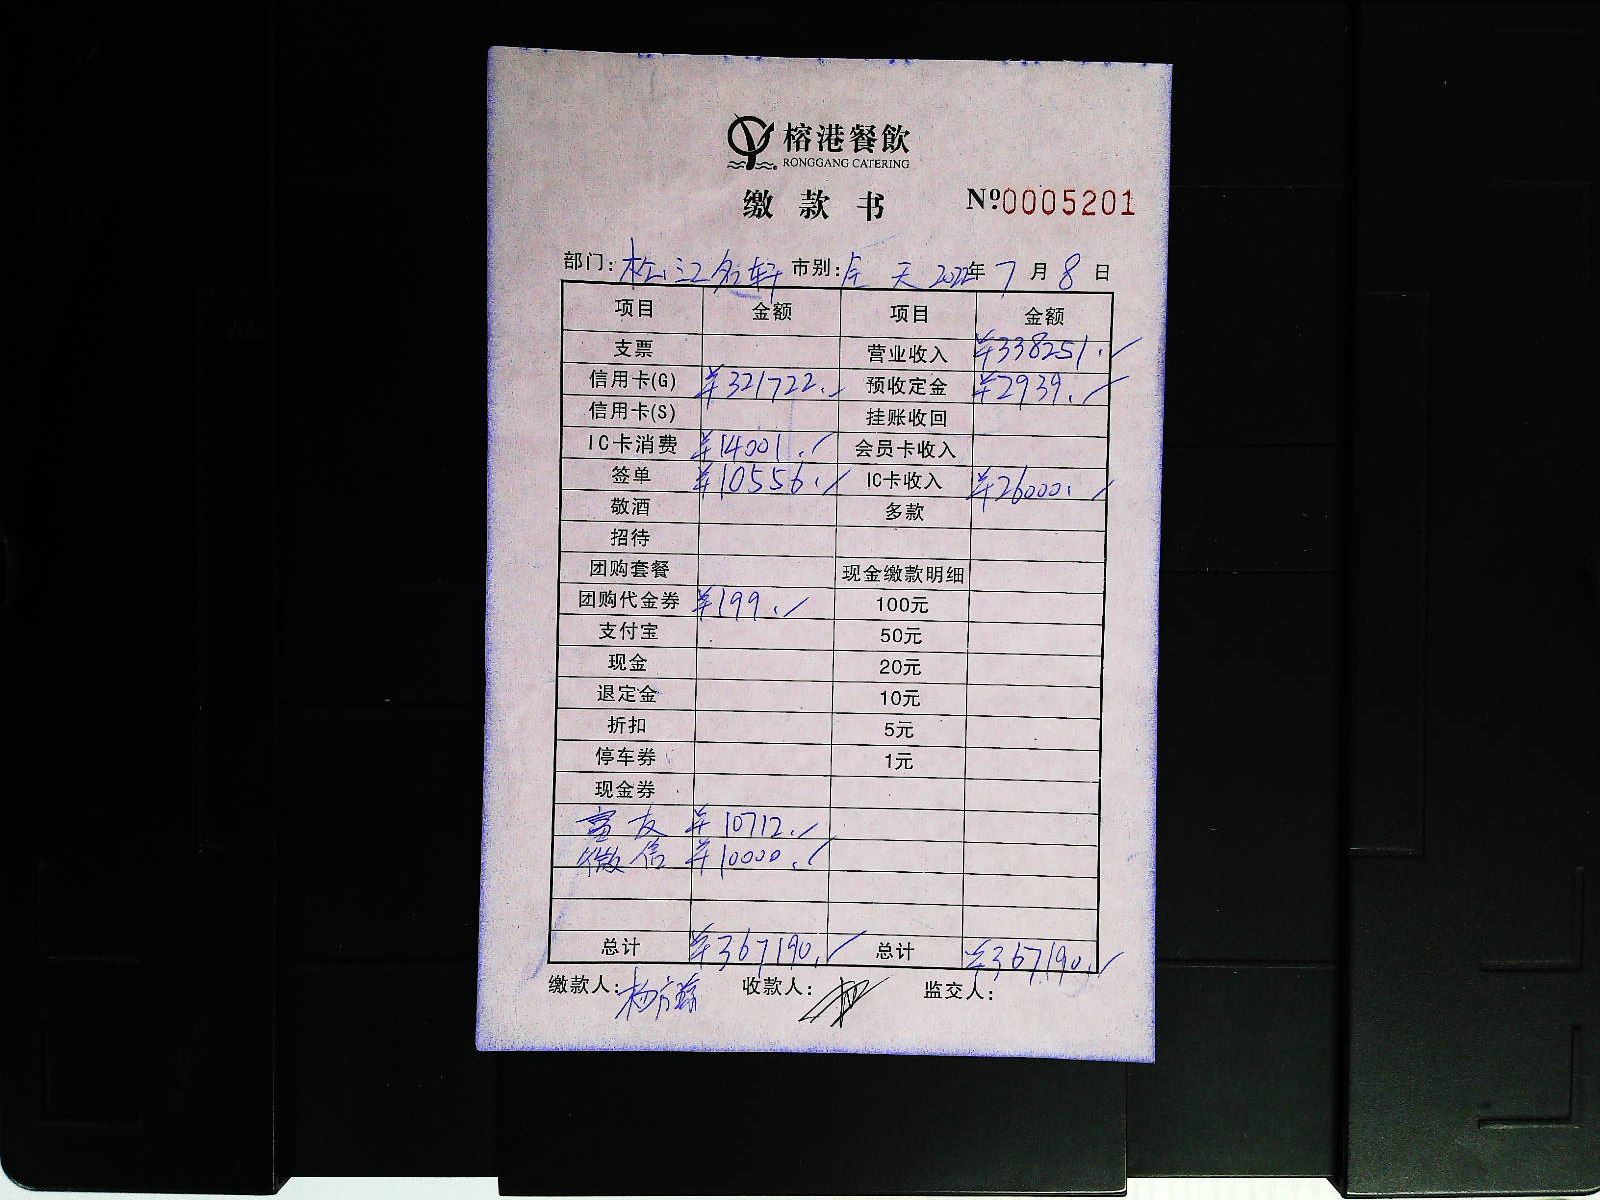 榕港餐飲
RONGGANG CATERING
缴款书 №0005201
部门: 松江名轩 市别: 全天 2022年 7月 8日
项目 金额 项目 金额
支票 营业收入 ¥338251.
信用卡(G) ¥321722. 预收定金 ¥2939.
信用卡(S) 挂账收回
IC卡消费 ¥14001. 会员卡收入
签单 ¥10556. IC卡收入 ¥26000.
敬酒 多款
招待
团购套餐 现金缴款明细
团购代金券 ¥199. 100元
支付宝 50元
现金 20元
退定金 10元
折扣 5元
停车券 1元
现金券
¥10712.
微信 ¥10000.
总计 ¥367190. 总计 ¥367190.
缴款人: 收款人: 监交人: